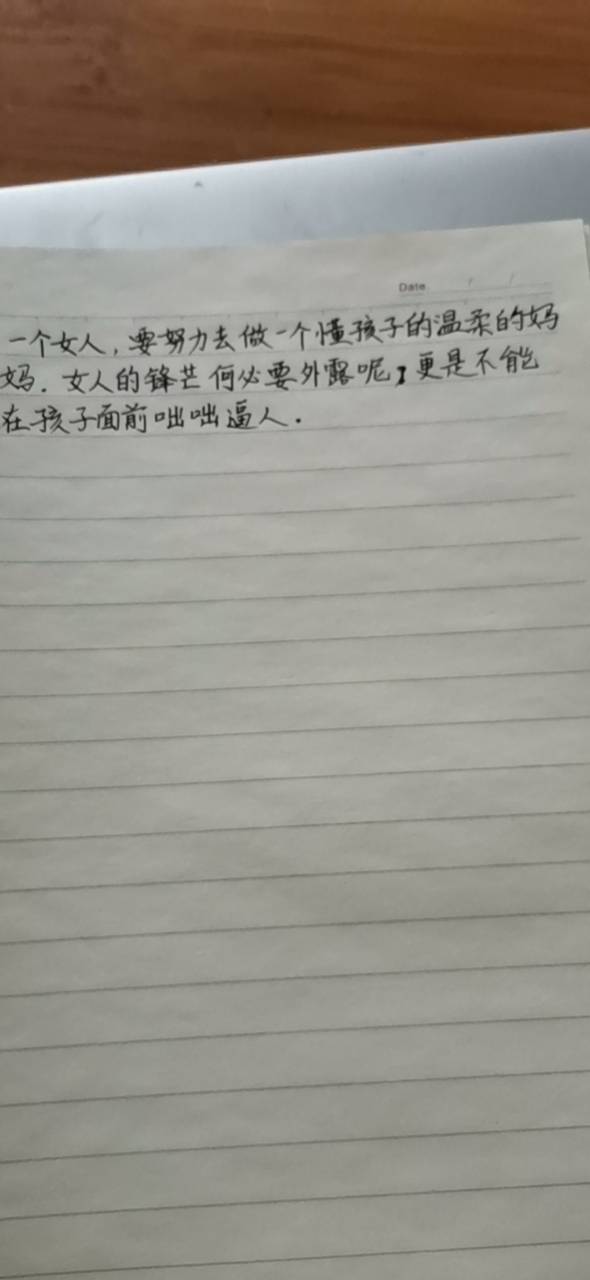 Date
一个女人,要努力去做一个懂孩子的温柔的妈
妈.女人的锋芒何必要外露呢?更是不能
在孩子面前咄咄逼人.